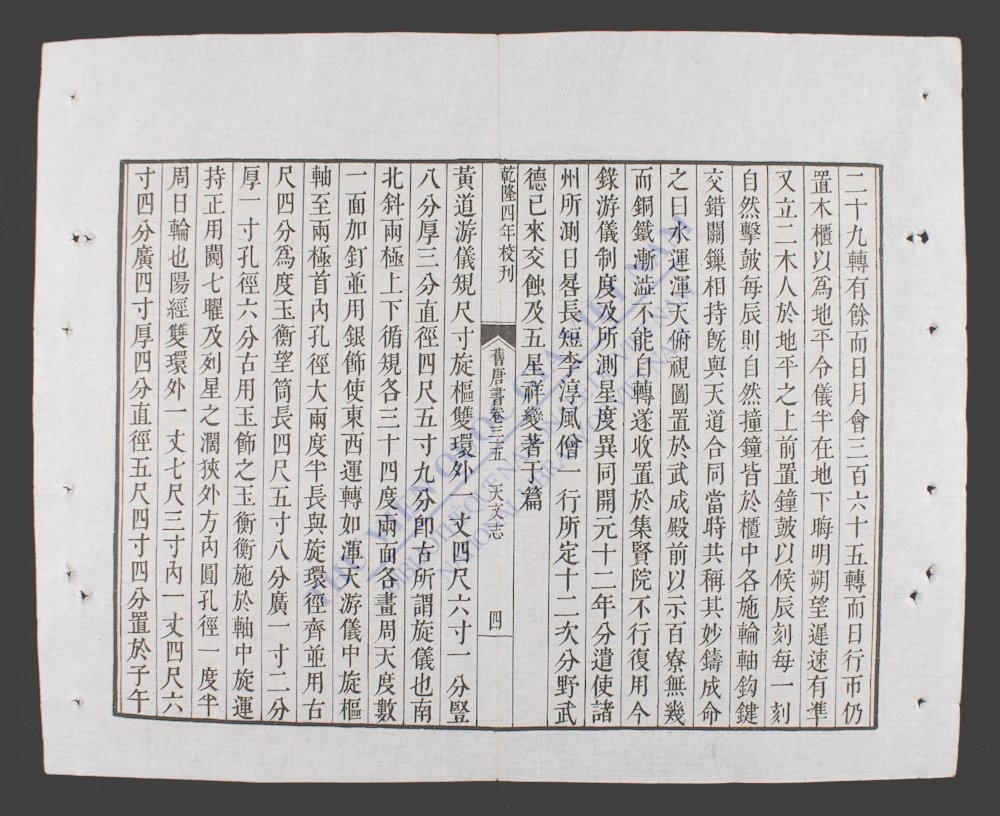 二十九轉有餘而日月會三百六十五轉而日行帀仍
置木櫃以爲地平令儀半在地下晦明朔望遲速有準
又立二木人於地平之上前置鐘鼓以候辰刻每一刻
自然擊鼓每辰則自然撞鐘皆於櫃中各施輪軸鈎鍵
交錯關鏁相持旣與天道合同當時共稱其妙鑄成命
之曰水運渾天俯視圖置於武成殿前以示百寮無幾
而銅鐵漸澁不能自轉遂收置於集賢院不行復用今
錄游儀制度及所測星度異同開元十二年分遣使諸
州所測日晷長短李淳風僧一行所定十二次分野武
德已來交蝕及五星祥變著于篇
乾隆四年校刊
舊唐書卷三十五 天文志
四
黃道游儀規尺寸旋樞雙環外一丈四尺六寸一分豎
八分厚三分直徑四尺五寸九分卽古所謂旋儀也南
北斜兩極上下循規各三十四度兩面各畫周天度數
一面加釘並用銀飾使東西運轉如渾天游儀中旋樞
軸至兩極首內孔徑大兩度半長與旋環徑齊並用古
尺四分爲度玉衡望筒長四尺五寸八分廣一寸二分
厚一寸孔徑六分古用玉飾之玉衡衡施於軸中旋運
持正用闚七曜及列星之濶狹外方內圓孔徑一度半
周日輪也陽經雙環外一丈七尺三寸內一丈四尺六
寸四分廣四寸厚四分直徑五尺四寸四分置於子午